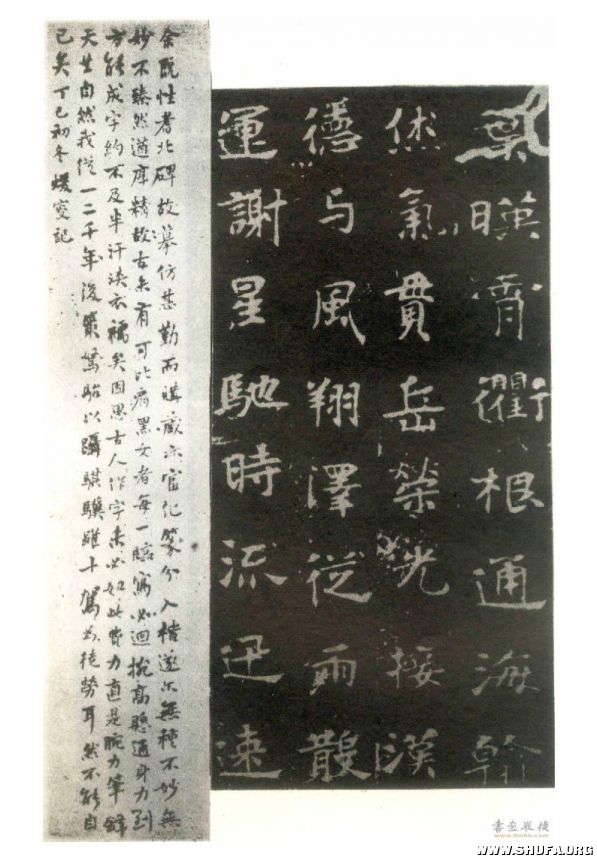 葉暎霄衢根通海翰
烋氣貫岳榮光接漢
德与風翔澤從雨散
運謝星馳時流迅速
余既性耆北碑故摹仿甚勤而購藏亦富化篆分入楷遂尔無種不妙無
妙不臻然遒厚精古未有可比肩黑女者每一臨寫必迴捥高懸通身力到
方能成字約不及半汗浹衣襦矣因思古人作字未必如此費力直是腕力筆鋒
天生自然我從一二千年後策駑駘以躡騏驥雖十駕徒勞耳然不能自
已矣丁巳初冬蝯叟記
WWW.SHUFA.ORG